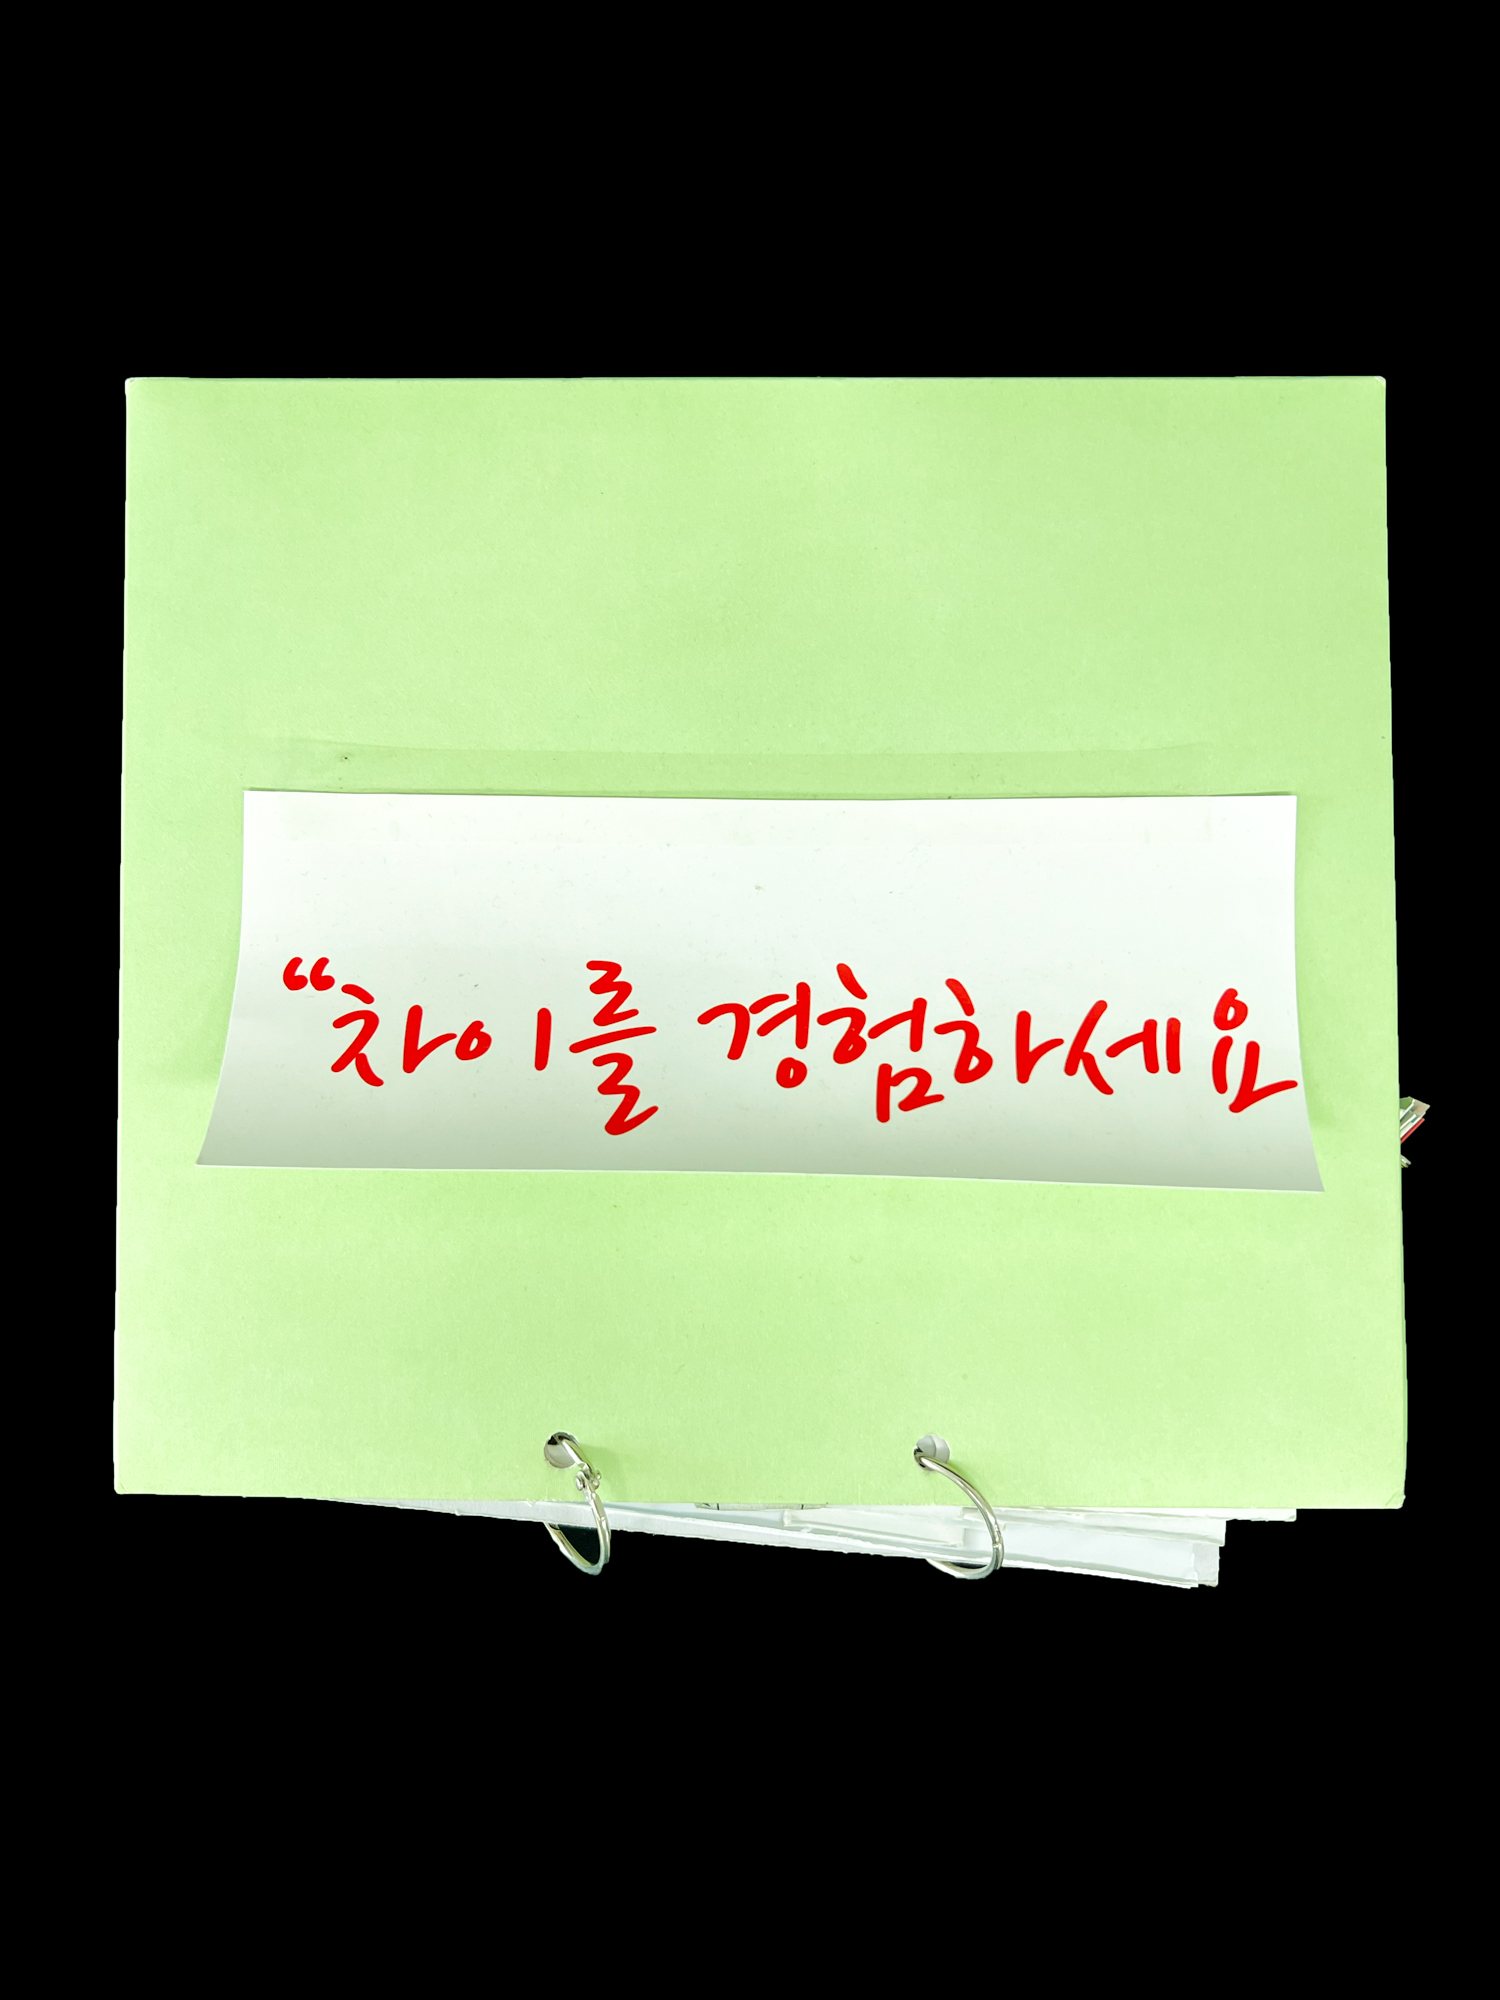 “차이를 경험하세요